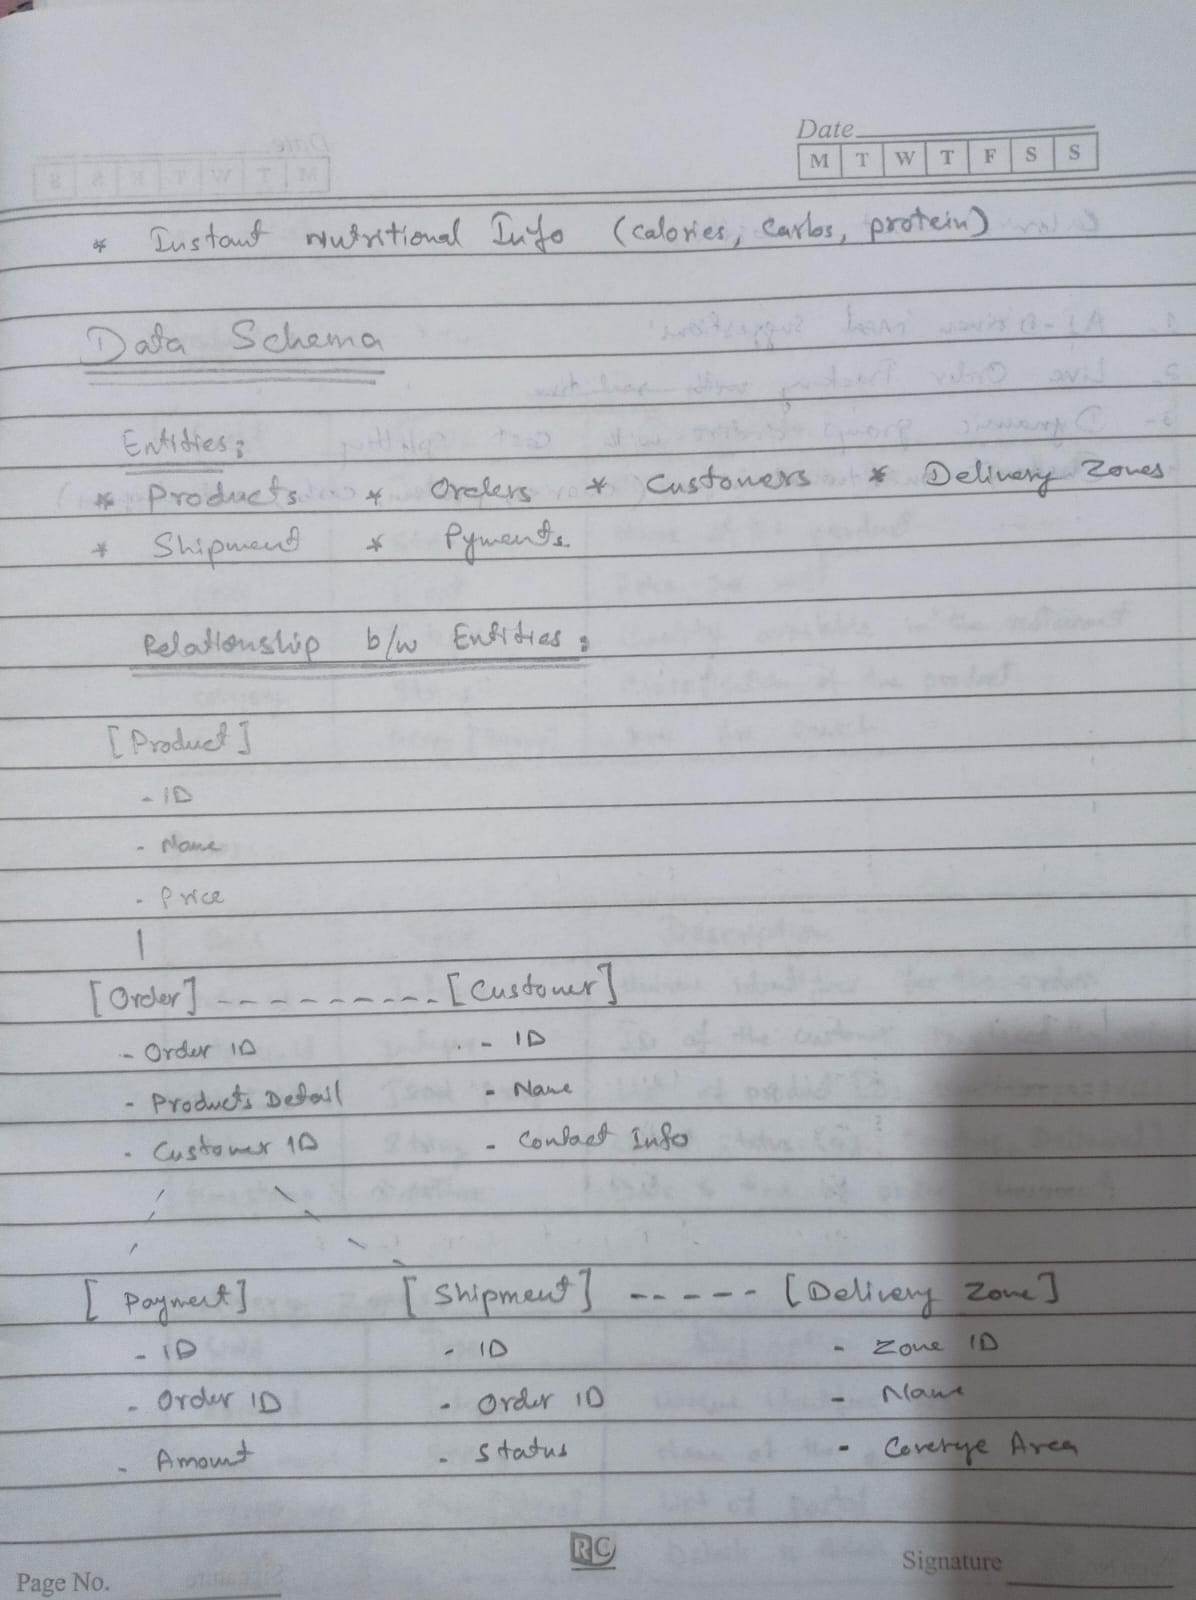 Date
M T W T F S S
* Instant Nutritional Info (calories, Carbs, protein)
Data Schema
Entities:
* Products * Orders * Customers * Delivery Zones
* Shipment * Pyments.
Relationship b/w Entities:
[Product]
- ID
- Name
- Price
[Order] ---------- [Customer]
- Order ID - ID
- Products Detail - Name
- Customer ID - Contact Info
[Payment] [Shipment] ----- [Delivery Zone]
- ID - ID - Zone ID
- Order ID - Order ID - Name
- Amount - Status - Coverye Area
RC
Page No. Signature